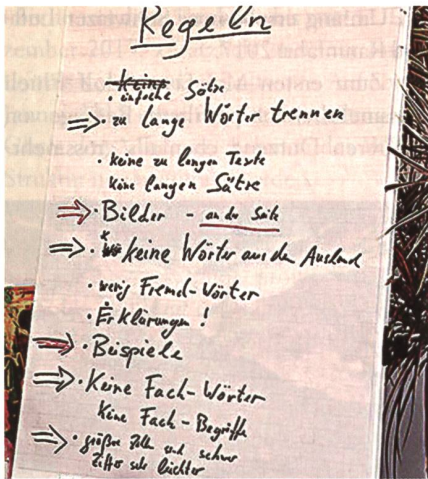 Regeln
einfache Sätze
⇒ · zu lange Wörter trennen
· keine zu langen Texte
keine langen Sätze
⇒ · Bilder - an der Seite
⇒ · keine Wörter aus dem Ausland
· wenig Fremd-Wörter
· Erklärungen!
⇒ · Beispiele
⇒ · Keine Fach-Wörter
Keine Fach-Begriffe
⇒ · große und schwer